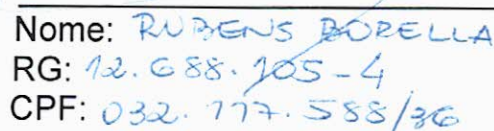 Nome: RUBENS BORELLA
RG: 12.688.105-4
CPF: 032.117.588/36